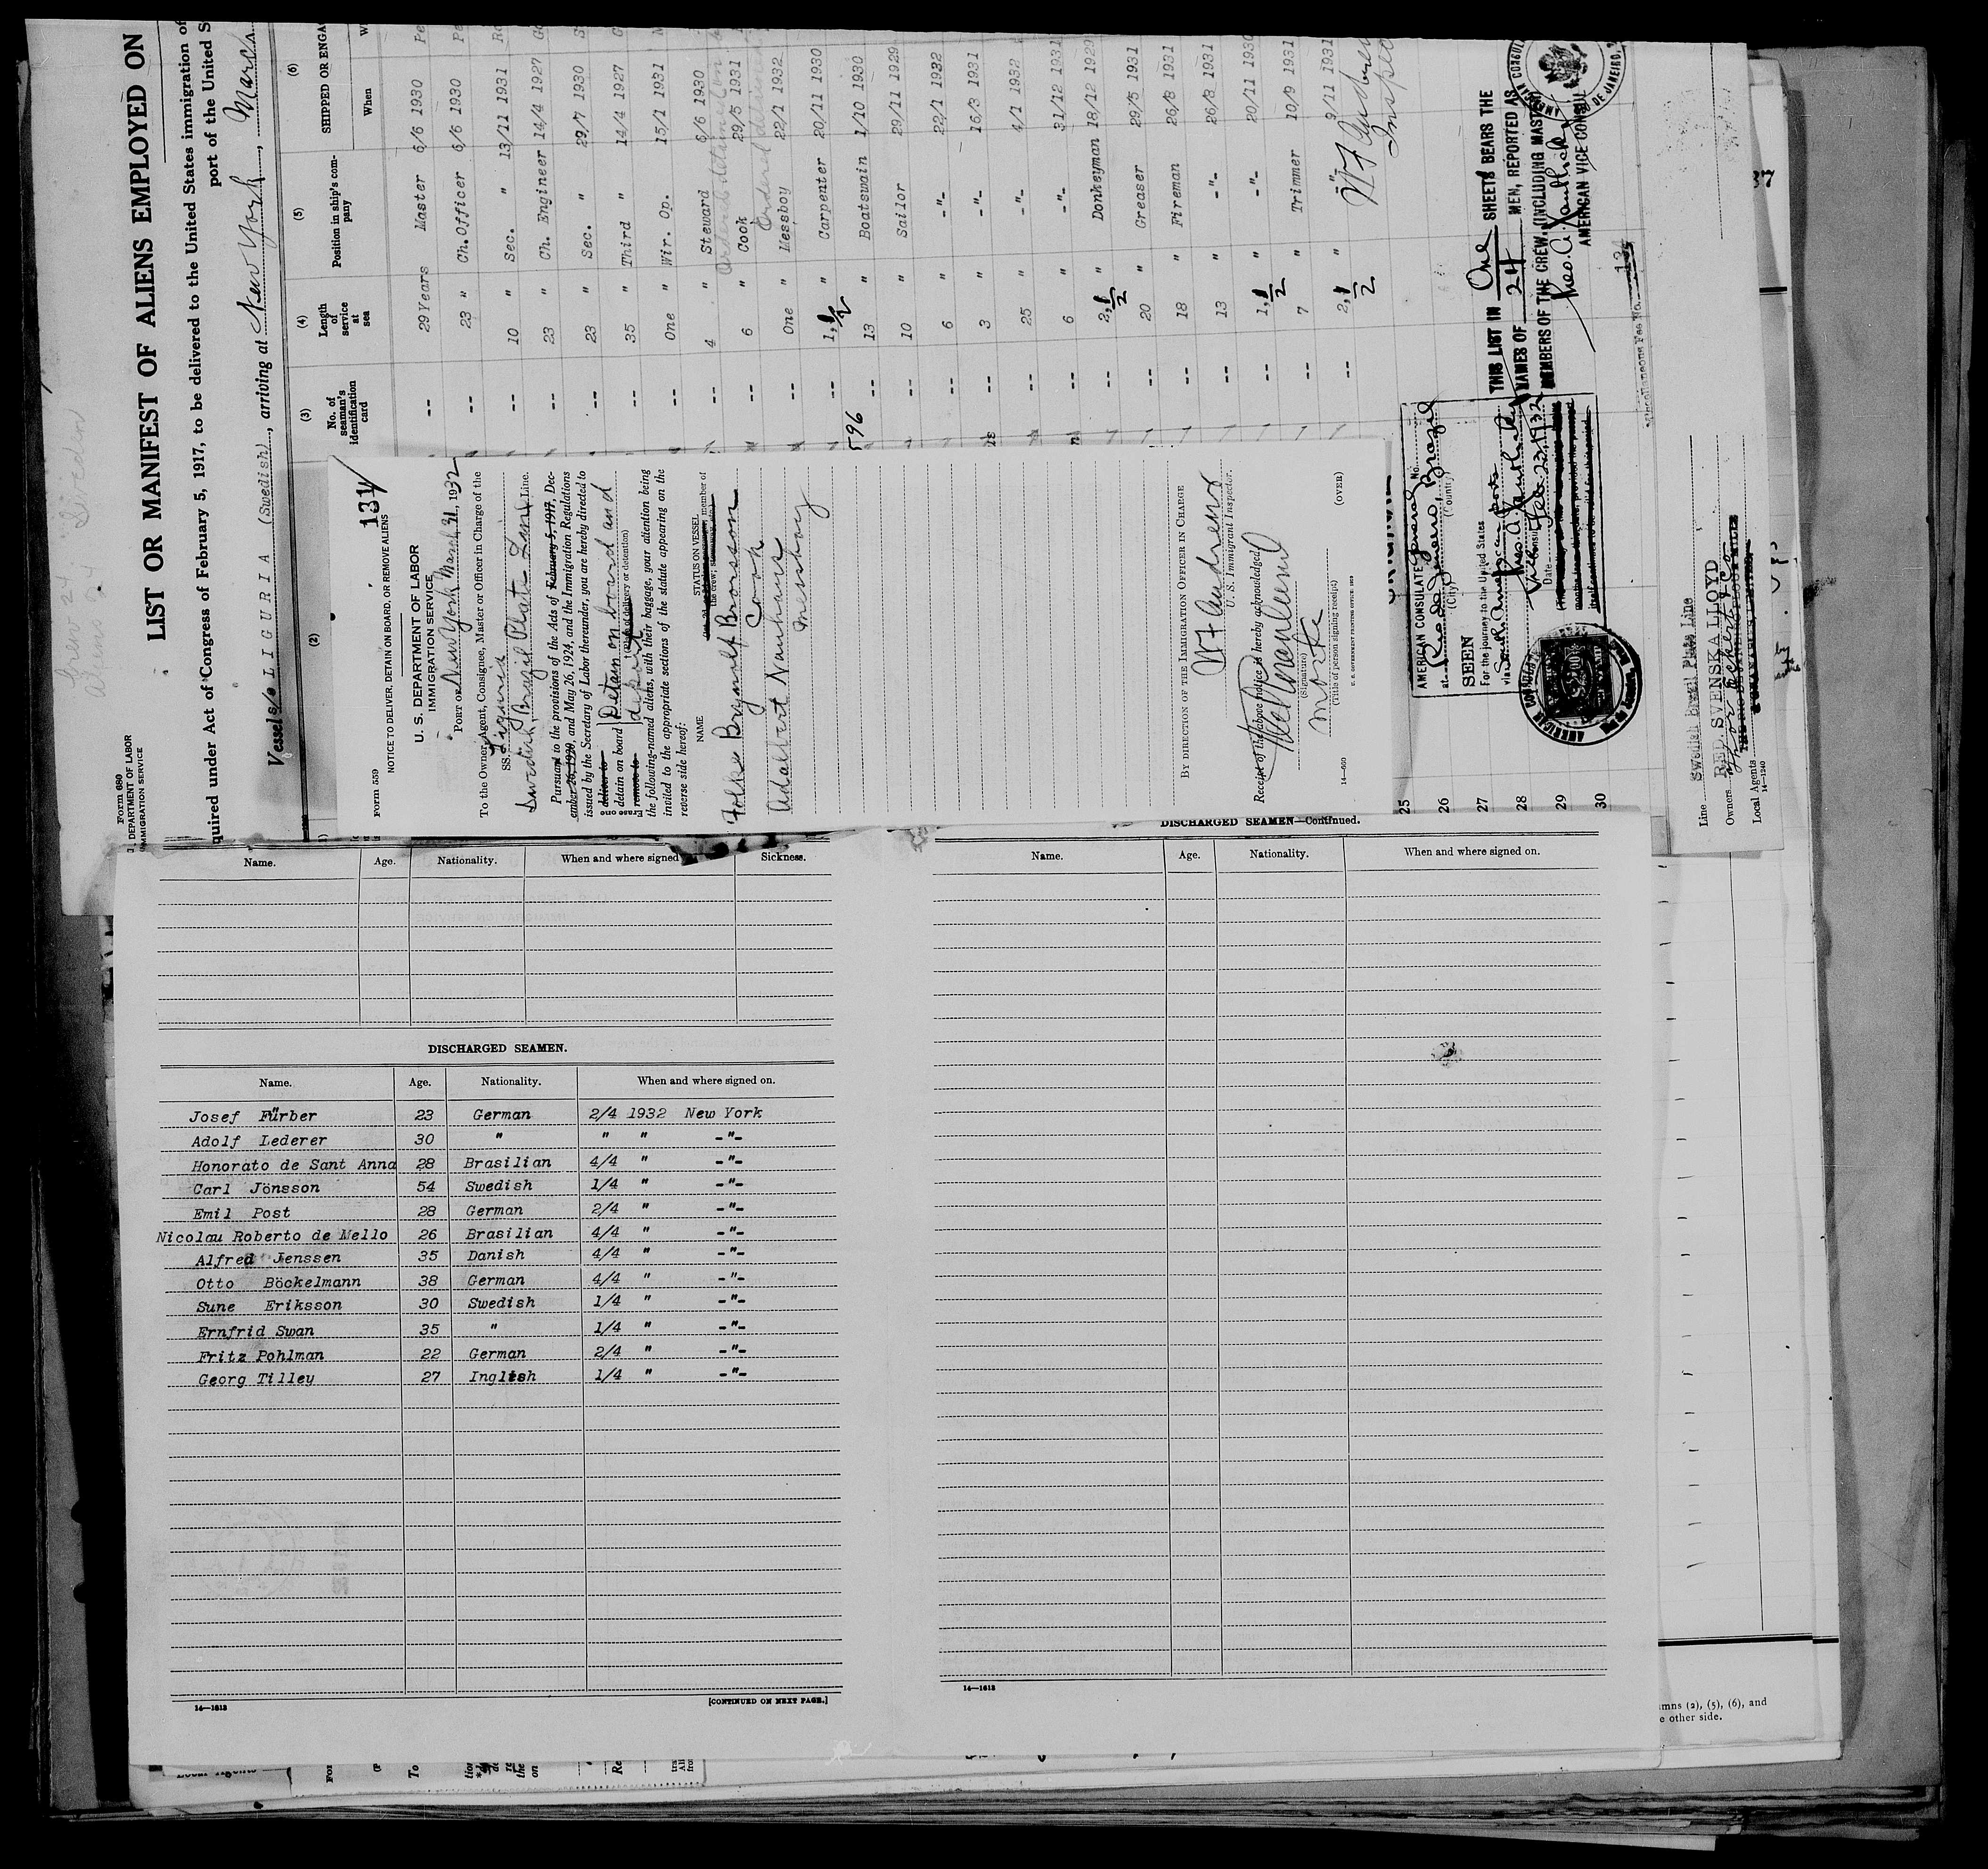 Form 680
DEPARTMENT OF LABOR
IMMIGRATION SERVICE
LIST OR MANIFEST OF ALIENS EMPLOYED ON
quired under Act of Congress of February 5, 1917, to be delivered to the United States immigration of
port of the United S
Vessel s/s LIGURIA (Swedish), arriving at New York, March
(2)
(3) No. of seaman's identification card
(4) Length of service at sea
(5) Position in ship's company
(6) SHIPPED OR ENGA
When
-- 29 Years Master 6/6 1930
-- 23 " Ch. Officer 6/6 1930
-- 10 " Sec. " 13/11 1931
-- 23 " Ch. Engineer 14/4 1927
-- 23 " Sec. " 29/7 1930
-- 35 " Third " 14/4 1927
-- One " Wir. Op. 15/1 1931
-- 4 " Steward 6/6 1930
-- 6 " Cook 29/5 1931
-- One " Messboy 22/1 1932
-- 1,1/2 " Carpenter 20/11 1930
-- 13 " Boatswain 1/10 1930
-- 10 " Sailor 29/11 1929
-- 6 " -"- 22/1 1932
-- 3 " -"- 16/3 1931
-- 25 " -"- 4/1 1932
-- 6 " -"- 31/12 1931
-- 2,1/2 " Donkeyman 18/12 1929
-- 20 " Greaser 29/5 1931
-- 18 " Fireman 26/8 1931
-- 13 " -"- 26/8 1931
-- 1,1/2 " -"- 20/11 1930
-- 7 " Trimmer 10/9 1931
-- 2,1/2 " -"- 9/11 1931
596
25
26
27
28
29
30
THIS LIST IN One SHEETS BEARS THE
NAMES OF 24 MEN, REPORTED AS
MEMBERS OF THE CREW. (INCLUDING MASTER)
AMERICAN VICE CONSUL
AMERICAN CONSULATE General No.
at Rio de Janeiro, Brazil
(City) (Country)
SEEN
For the journey to the United States
via South American ports
Vice Consul
Date Feb 23, 1932
Miscellaneous Fee No. 134
Line Swedish Brazil Plate Line
Owners Rep. SVENSKA LLOYD
Local Agents
14—1240
Form 559
134
NOTICE TO DELIVER, DETAIN ON BOARD, OR REMOVE ALIENS
U. S. DEPARTMENT OF LABOR
IMMIGRATION SERVICE
PORT OF New York March 31, 1932
To the Owner, Agent, Consignee, Master or Officer in Charge of the
SS. Liguria
Swedish Brazil Plate Line Line.
Pursuant to the provisions of the Acts of February 5, 1917, Dec-
ember 26, 1920, and May 26, 1924, and the Immigration Regulations
issued by the Secretary of Labor thereunder, you are hereby directed to
deliver to
detain on board Detain on board and
remove to deport
(Place of delivery or detention)
Erase one
the following-named aliens, with their baggage, your attention being
invited to the appropriate sections of the statute appearing on the
reverse side hereof:
NAME STATUS ON VESSEL
Folke Brynolf Brorsson Cook
Adalbert Naunhaus Messboy
BY DIRECTION OF THE IMMIGRATION OFFICER IN CHARGE
U. S. Immigrant Inspector.
Receipt of the above notice is hereby acknowledged
(Signature)
(Title of person signing receipt)
14—600 (OVER)
Name. Age. Nationality. When and where signed Sickness.
DISCHARGED SEAMEN.
Name. Age. Nationality. When and where signed on.
Josef Fürber 23 German 2/4 1932 New York
Adolf Lederer 30 " " " -"-
Honorato de Sant Anna 28 Brasilian 4/4 " -"-
Carl Jönsson 54 Swedish 1/4 " -"-
Emil Post 28 German 2/4 " -"-
Nicolau Roberto de Mello 26 Brasilian 4/4 " -"-
Alfred Jenssen 35 Danish 4/4 " -"-
Otto Böckelmann 38 German 4/4 " -"-
Sune Eriksson 30 Swedish 1/4 " -"-
Ernfrid Swan 35 " 1/4 " -"-
Fritz Pohlman 22 German 2/4 " -"-
Georg Tilley 27 Inglish 1/4 " -"-
14—1613
[CONTINUED ON NEXT PAGE.]
DISCHARGED SEAMEN—Continued.
Name. Age. Nationality. When and where signed on.
14—1613
umns (2), (5), (6), and
e other side.